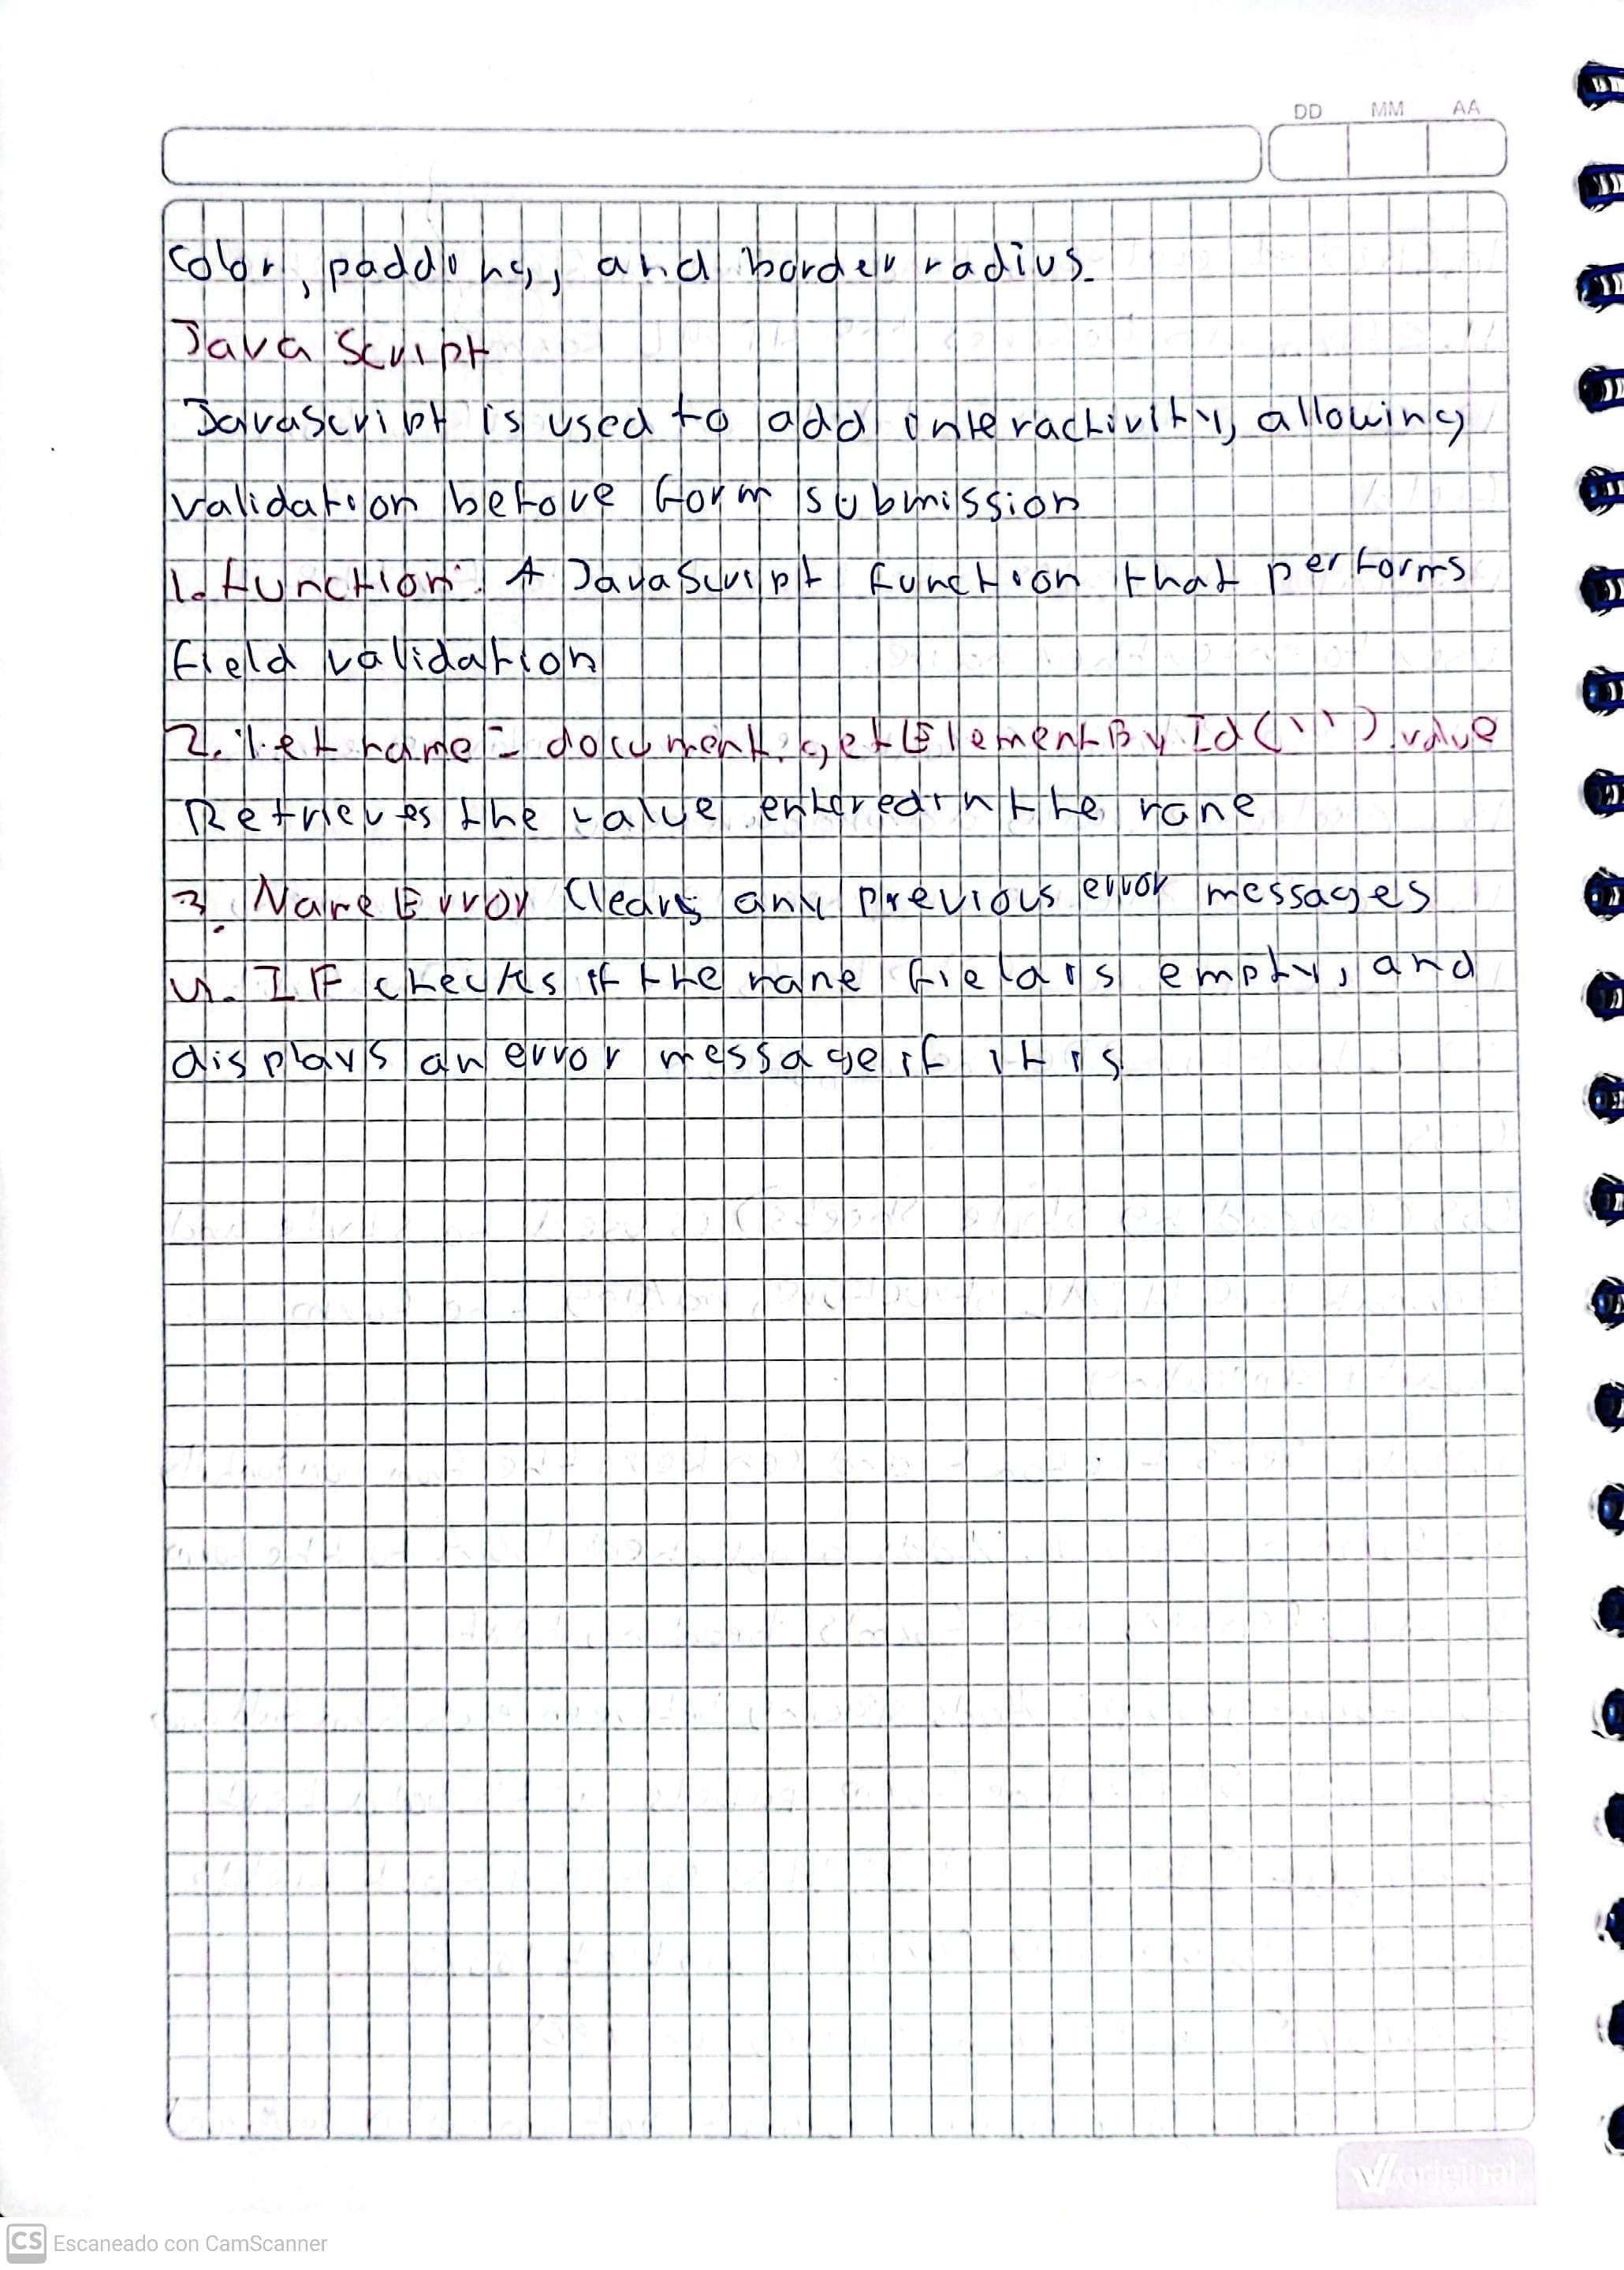 DD MM AA
Color, padding, and border radius.
JavaScript
JavaScript is used to add interactivity, allowing
validation before form submission
1. function: A JavaScript function that performs
field validation
2. let name = document.getElementById('').value
Retrieves the value entered in the name
3. NameError Clears any previous error messages
4. IF checks if the name field is empty, and
displays an error message if it is
original
CS Escaneado con CamScanner